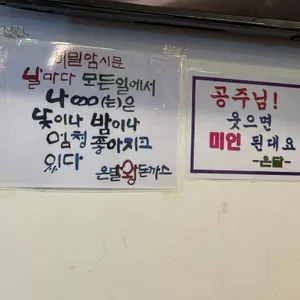 비밀암시문
날마다 모든일에서
나ooo(는)은
낮이나 밤이나
엄청 좋아지고
있다
온달왕돈까스
공주님!
웃으면
미인 된대요
-온달-